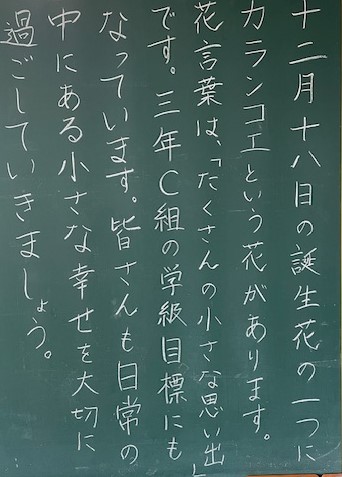 十二月十八日の誕生花の一つに
カランコエという花があります。
花言葉は、「たくさんの小さな思い出」
です。三年C組の学級目標にも
なっています。皆さんも日常の
中にある小さな幸せを大切に
過ごしていきましょう。